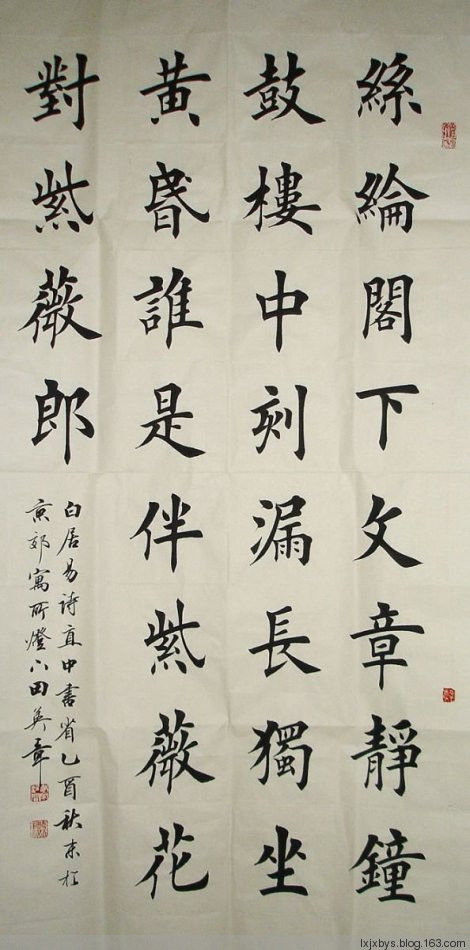 絲綸閣下文章靜鐘
鼓樓中刻漏長獨坐
黃昏誰是伴紫薇花
對紫薇郎
白居易詩直中書省乙酉秋末於
京郊寓所燈下田英章
lxjxbys.blog.163.com